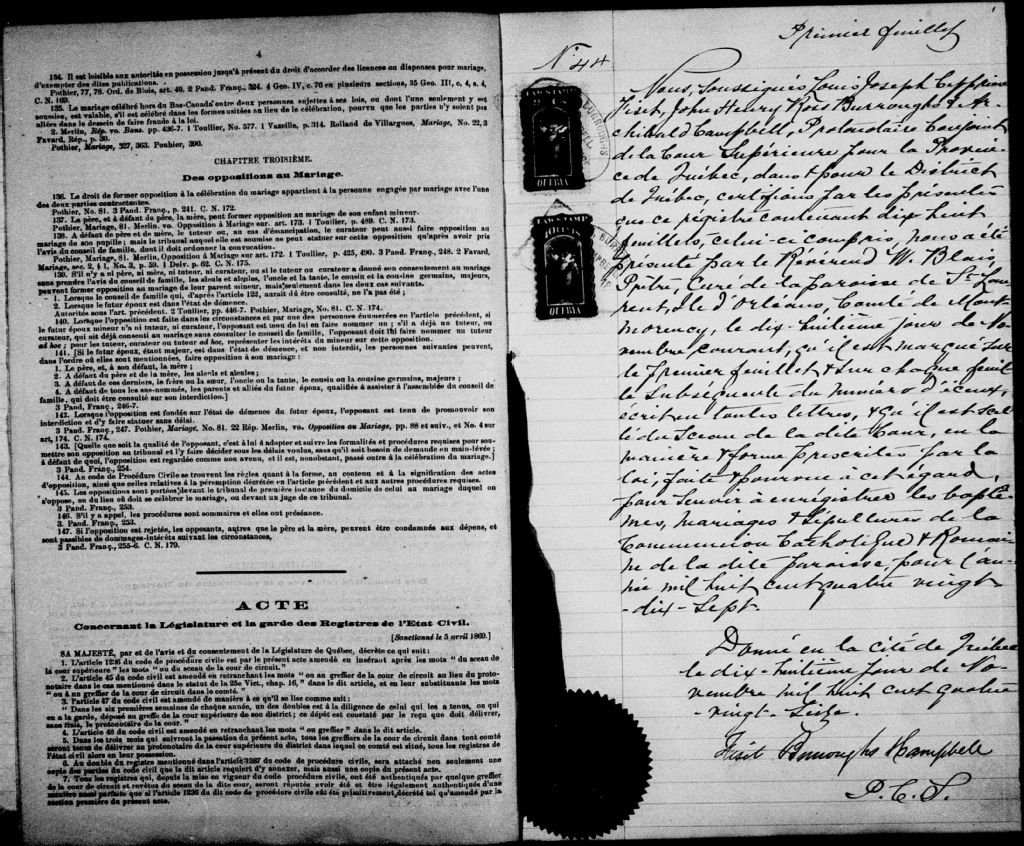 4
134. Il est loisible aux autorités en possession jusqu'à présent du droit d'accorder des licences ou dispenses pour mariage,
d'exempter des dites publications.
Pothier, 77, 78. Ord. de Blois, art. 40. 2 Pand. Franç., 324. 4 Geo. IV, c. 76 en plusieurs sections, 35 Geo. III, c. 4, s. 4,
C. N. 169.
135. Le mariage célébré hors du Bas-Canada entre deux personnes sujettes à ses lois, ou dont l'une seulement y est
soumise, est valable, s'il est célébré dans les formes usitées au lieu de la célébration, pourvu que les parties n'y soient pas
allées dans le dessein de faire fraude à la loi.
2. Merlin, Rép. vo. Bans. pp. 436-7. 1 Toullier, No. 577. 1 Vazeille, p. 314. Rolland de Villargues, Mariage, No. 22, 3
Favard, Rép., p. 30.
Pothier, Mariage, 327, 363. Pouhier, 390.
CHAPITRE TROISIÈME.
Des oppositions au Mariage.
136. Le droit de former opposition à la célébration du mariage appartient à la personne engagée par mariage avec l'une
des deux parties contractantes.
Pothier, No. 81. 3 Pand. Franç., p. 241. C. N. 172.
137. Le père, et à défaut du père, la mère, peut former opposition au mariage de son enfant mineur.
Pothier, Mariage, 81. Merlin. vo. Opposition à Mariage sur. art. 173. 1 Toullier, p. 489. C. N. 173.
138. A défaut de père et de mère, le tuteur ou, au cas d'émancipation, le curateur peut aussi faire opposition au
mariage de son pupille ; mais le tribunal auquel elle est soumise ne peut statuer sur cette opposition qu'après avoir pris
l'avis du conseil de famille, dont il doit ordonner la convocation.
Pothier, Mariage, 81. Merlin, Opposition à Mariage sur art. 172. 1 Toullier, p. 425, 490. 3 Pand. Franç., 248. 2 Favard,
Mariage, sec. 2, § 1, No. 3, p. 59. 1 Delv. p. 62. C. N. 175.
139. S'il n'y a ni père, ni mère, ni tuteur, ni curateur, ou si le tuteur ou curateur a donné son consentement au mariage
sans prendre l'avis du conseil de famille, les aïeuls et aïeules, l'oncle et la tante, le cousin et la cousine germains, majeurs,
peuvent former opposition au mariage de leur parent mineur, mais seulement dans les deux cas suivants.
1. Lorsque le conseil de famille qui, d'après l'article 122, aurait du être consulté, ne l'a pas été ;
2. Lorsque le futur époux est dans l'état de démence.
Autorités sous l'art. précédent. 2 Toullier, pp. 446-7. Pothier, Mariage, No. 81. C. N. 174.
140. Lorsque l'opposition est faite dans les circonstances et par une des personnes énumérées en l'article précédent, si
le futur époux mineur n'a ni tuteur, ni curateur, l'opposant est tenu de lui en faire nommer un ; s'il a déjà un tuteur ou
curateur, qui ait déjà consenti au mariage sans consulter le conseil de famille, l'opposant doit lui faire nommer un tuteur
ad hoc ; pour les tuteur, curateur ou tuteur ad hoc, représenter les intérêts du mineur sur cette opposition.
141. [Si le futur époux, étant majeur, est dans l'état de démence, et non interdit, les personnes suivantes peuvent,
dans l'ordre où elles sont mentionnées, faire opposition à son mariage :
1. Le père, et, à son défaut, la mère ;
2. A défaut du père et de la mère, les aïeuls et aïeules ;
3. A défaut de ces derniers, le frère ou la sœur, l'oncle ou la tante, le cousin ou la cousine germains, majeurs ;
4. A défaut de tous les sus-nommés, les parents et alliés du futur époux, qualifiés à assister à l'assemblée du conseil de
famille, qui doit être consulté sur son interdiction.]
3 Pand. Franç., 246-7.
142. Lorsque l'opposition est fondée sur l'état de démence du futur époux, l'opposant est tenu de promouvoir son
interdiction et d'y faire statuer sans délai.
3 Pand. Franç., 247. Pothier, Mariage, No. 81. 22 Rép. Merlin, vo. Opposition au Mariage, pp 88 et suiv., et No. 4 sur
art, 174. C. N. 174.
143. [Quelle que soit la qualité de l'opposant, c'est à lui à adopter et suivre les formalités et procédures requises pour sou-
mettre son opposition au tribunal et l'y faire décider sous les délais voulus, sans qu'il soit besoin de demande en main-levée ;
à défaut de quoi, l'opposition est regardée comme non avenu, et il est, nonobstant, passé outre à la célébration du mariage.]
3 Pand. Franç., 254.
144. Au code de Procédure Civile se trouvent les règles quant à la forme, au contenu et à la signification des actes
d'opposition, ainsi que celles relatives à la péremption décrétée en l'article précédent et aux autres procédures requises.
145. Les oppositions sont portées devant le tribunal de première instance du domicile de celui au mariage duquel on
s'oppose, ou du lieu où doit se célébrer le mariage, ou devant un juge de ce tribunal.
3 Pand. Franç., 253.
146. S'il y a appel, les procédures sont sommaires et elles ont préséance.
3. Pand. Franç., 253.
147. Si l'opposition est rejetée, les opposants, autres que le père et la mère, peuvent être condamnés aux dépens, et
sont passibles de dommages-intérêts suivant les circonstances,
3 Pand. Franç., 255-6. C. N. 179.
ACTE
Concernant la Législature et la garde des Registres de l'Etat Civil.
[Sanctionné le 5 avril 1869.]
SA MAJESTÉ, par et de l'avis et du consentement de la Législature de Québec, décrète ce qui suit:
1. L'article 1236 du code de procédure civile est par le présent acte amendé en insérant après les mots "du sceau de
la cour supérieure" les mots "ou du sceau de la cour de circuit."
2. L'article 45 du code civil est amendé en retranchant les mots "ou au greffier de la cour de circuit au lieu du proto-
notaire dans le cas mentionné dans le statut de la 25e Vict., chap. 16," dans le dit article, et en leur substituants les mots
"ou à un greffier de la cour de circuit dans le comté."
3. l'article 47 du code civil est amendé de manière à ce qu'il se lise comme suit :
"Dans les six premières semaines de chaque année, un des doubles est à la diligence de celui qui les a tenus, ou qui
en a la garde, déposé au greffe de la cour supérieure de son district ; ce dépôt est constaté par le reçu que doit délivrer,
sans frais, le protonotaire de la cour."
4. L'article 48 du code civil est amendé en retranchant les mots "ou greffier" dans le dit article.
5. Dans les trois mois qui suivront la passation du présent acte, tous les greffiers de la cour de circuit dans tout comté
seront tenus de délivrer au protonotaire de la cour supérieure du district dans lequel ce comté est situé, tous les registres de
l'état civil alors en leur possession.
6. Au double du registre mentionné dans l'article 1237 du code de procédure civile, sera attaché non seulement une
copie des parties du code civil que le dit article requiert d'y annexer, mais aussi une copie du présent acte.
7. Tous les registres qui, depuis la mise en vigueur du code de procédure civile, ont été authentiqués par quelque greffier
de la cour de circuit et revêtus du sceau de la dite cour, seront réputés avoir été et être légalement authentiqués d'une
manière aussi parfaite que si l'article 1236 du dit code de procédure civile eut été primitivement décrété tel qu'amendé par la
section première du présent acte.
1
Premier feuillet
No. 44
LAW STAMP
QUEBEC
LAW STAMP
QUEBEC
Nous, Soussignés Louis Joseph Cyprien
Fiset, John Henry Ross Burroughs & Ar-
chibald Campbell, Protonotaire Conjoint
de la Cour Supérieure pour la Provin-
ce de Québec, dans & pour le District
de Québec, certifions par les présentes
que ce régistre contenant dix huit
feuillets, celui-ci compris, nous a été
présenté par le Révérend W. Blais,
Prêtre, Curé de la paroisse de St Lau-
rent, Ile d'Orléans, Comté de Mont-
morency, le dix-huitième jour de No-
vembre courant, qu'il est marqué sur
le premier feuillet & sur chaque feuil
le subséquente du numéro d'iceux,
écrit en toutes lettres, & qu'il est scel-
lé du sceau de la dite Cour, en la
manière & forme prescrites par la
loi, faite & pourvue à cet égard,
pour servir à enregistrer les baptê-
mes, mariages & sépultures de la
Communion Catholique & Romai-
ne de la dite paroisse, pour l'an-
née mil huit cent quatre vingt
-dix-sept.
Donné en la cité de Québec
le dix huitième jour de No-
vembre mil huit cent quatre
-vingt-seize.
Fiset Burroughs Campbell
P. C. S.